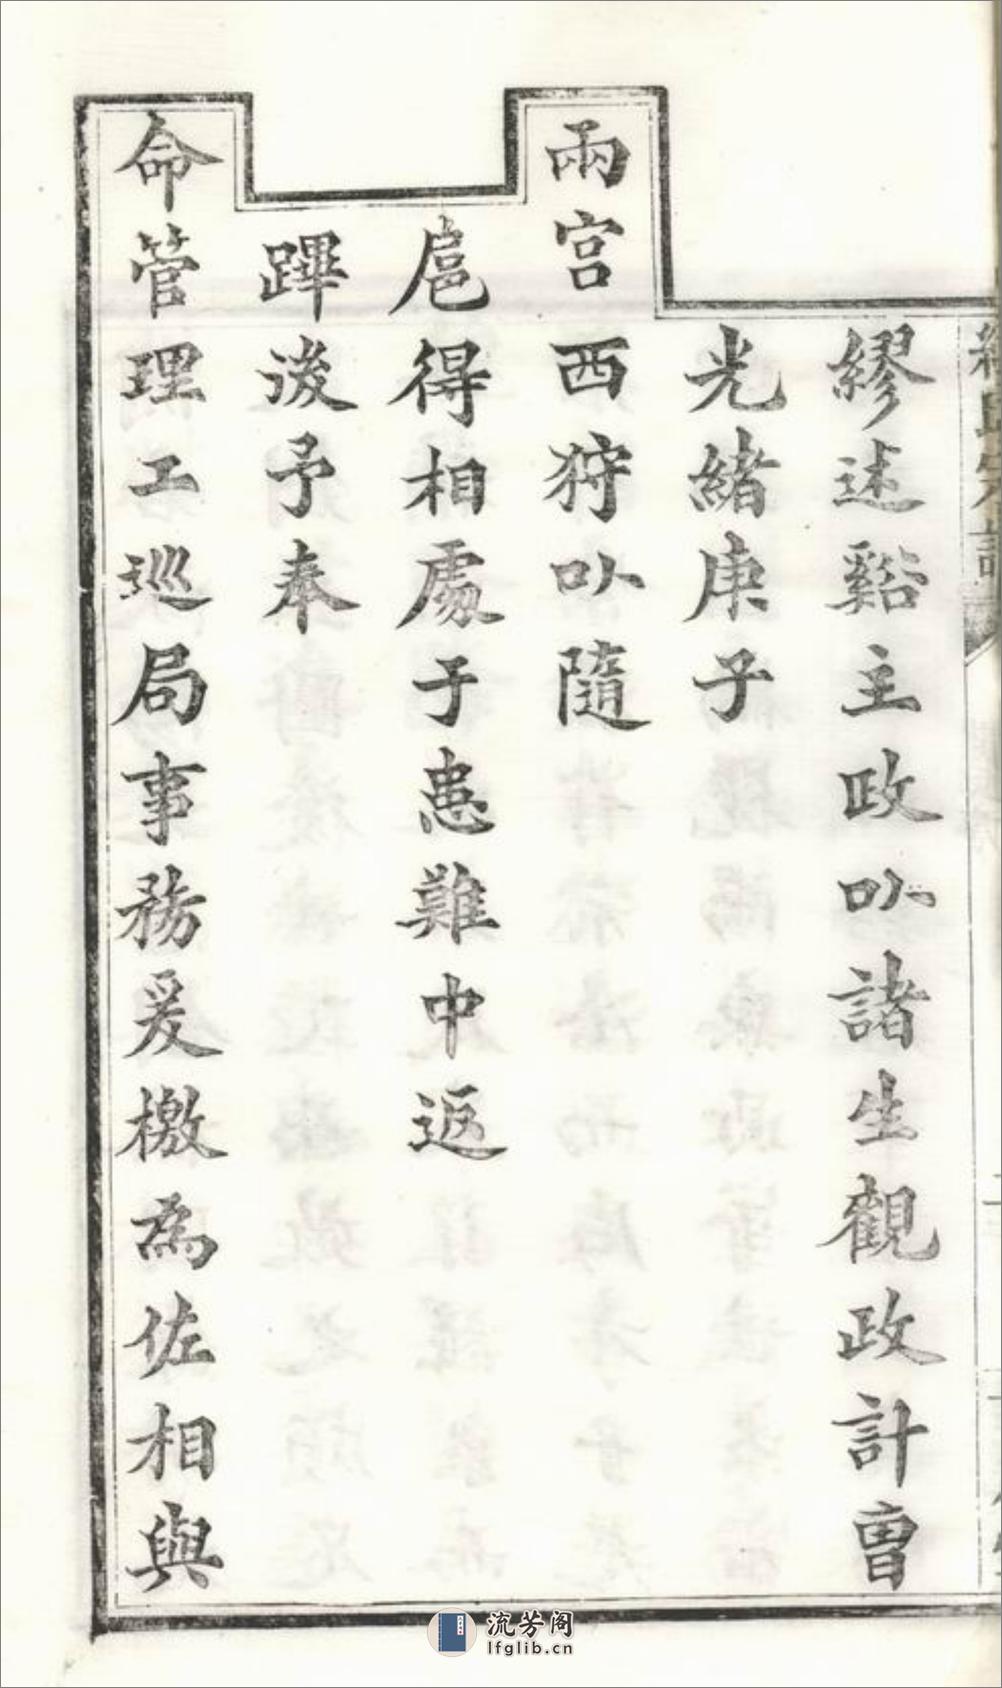 繆述谿主政㕥諸生觀政計曹
光緒庚子
兩宮西狩㕥隨
扈得相處于患難中返
蹕後予奉
命管理工巡局事務爰檄爲佐相與
流芳阁
lfglib.cn